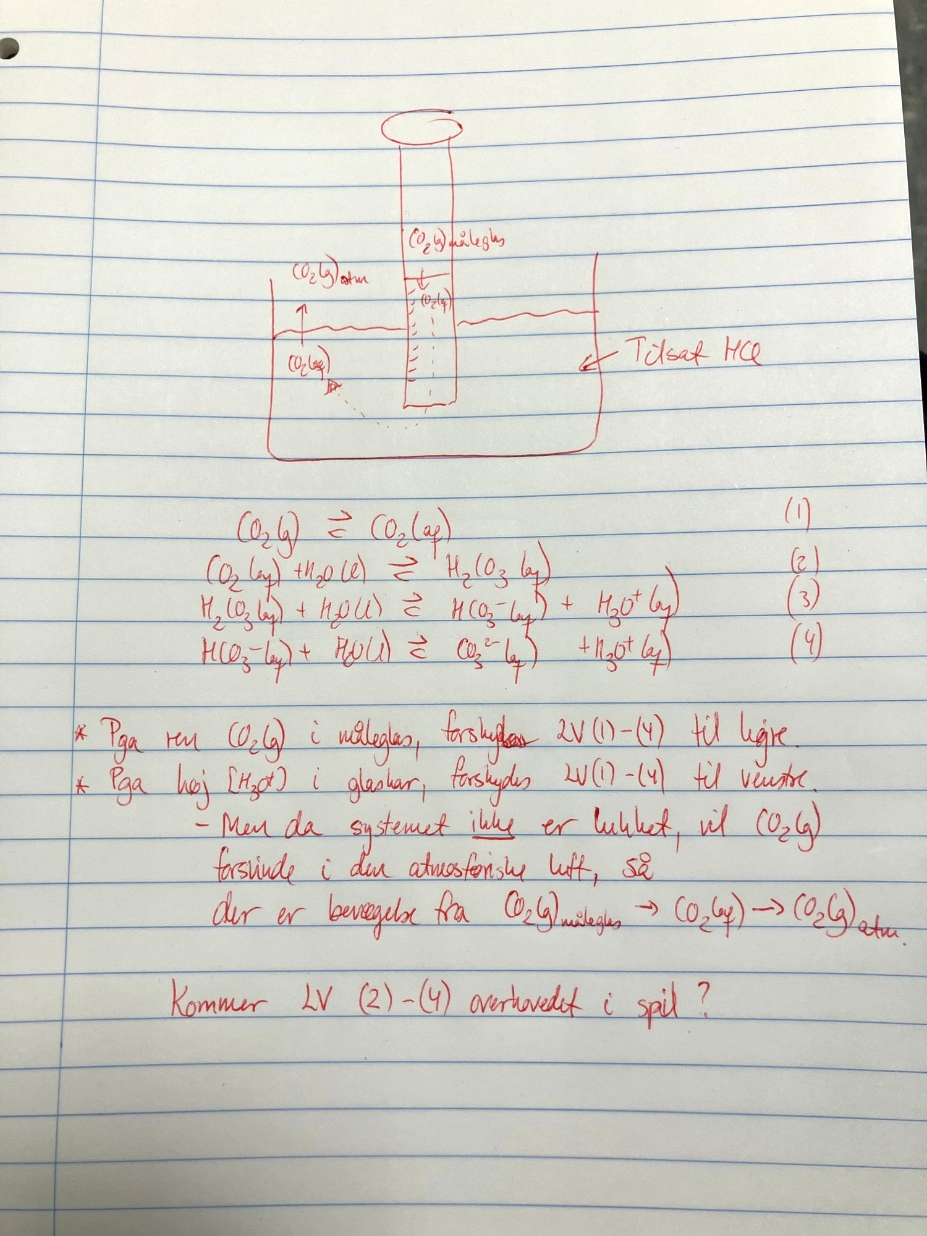 CO₂(g)måleglas
CO₂(g)atm
CO₂(aq)
CO₂(aq)
Tilsat HCl
CO₂(g) ⇌ CO₂(aq) (1)
CO₂(aq) + H₂O(l) ⇌ H₂CO₃(aq) (2)
H₂CO₃(aq) + H₂O(l) ⇌ HCO₃⁻(aq) + H₃O⁺(aq) (3)
HCO₃⁻(aq) + H₂O(l) ⇌ CO₃²⁻(aq) + H₃O⁺(aq) (4)
* Pga ren CO₂(g) i måleglas, forskydes LV (1)-(4) til højre.
* Pga høj [H₃O⁺] i glaskar, forskydes LV (1)-(4) til venstre.
- Men da systemet ikke er lukket, vil CO₂(g)
forsvinde i den atmosfæriske luft, så
der er bevægelse fra CO₂(g)måleglas → CO₂(aq) → CO₂(g)atm.
Kommer LV (2)-(4) overhovedet i spil?